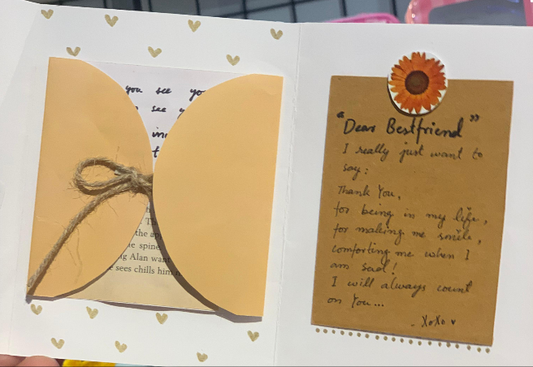 you see yo
see y
in
t
Th
the ap
e spine
ng Alan want
e sees chills him
"Dear Bestfriend"
I really just want to
say:
Thank You,
for being in my life,
for making me smile,
comforting me when I
am sad!
I will always count
on You...
- XoXo ♥